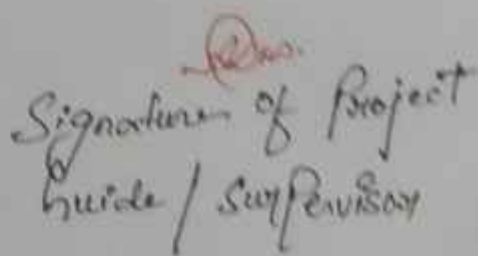 Signature of Project
Guide / Supervisor